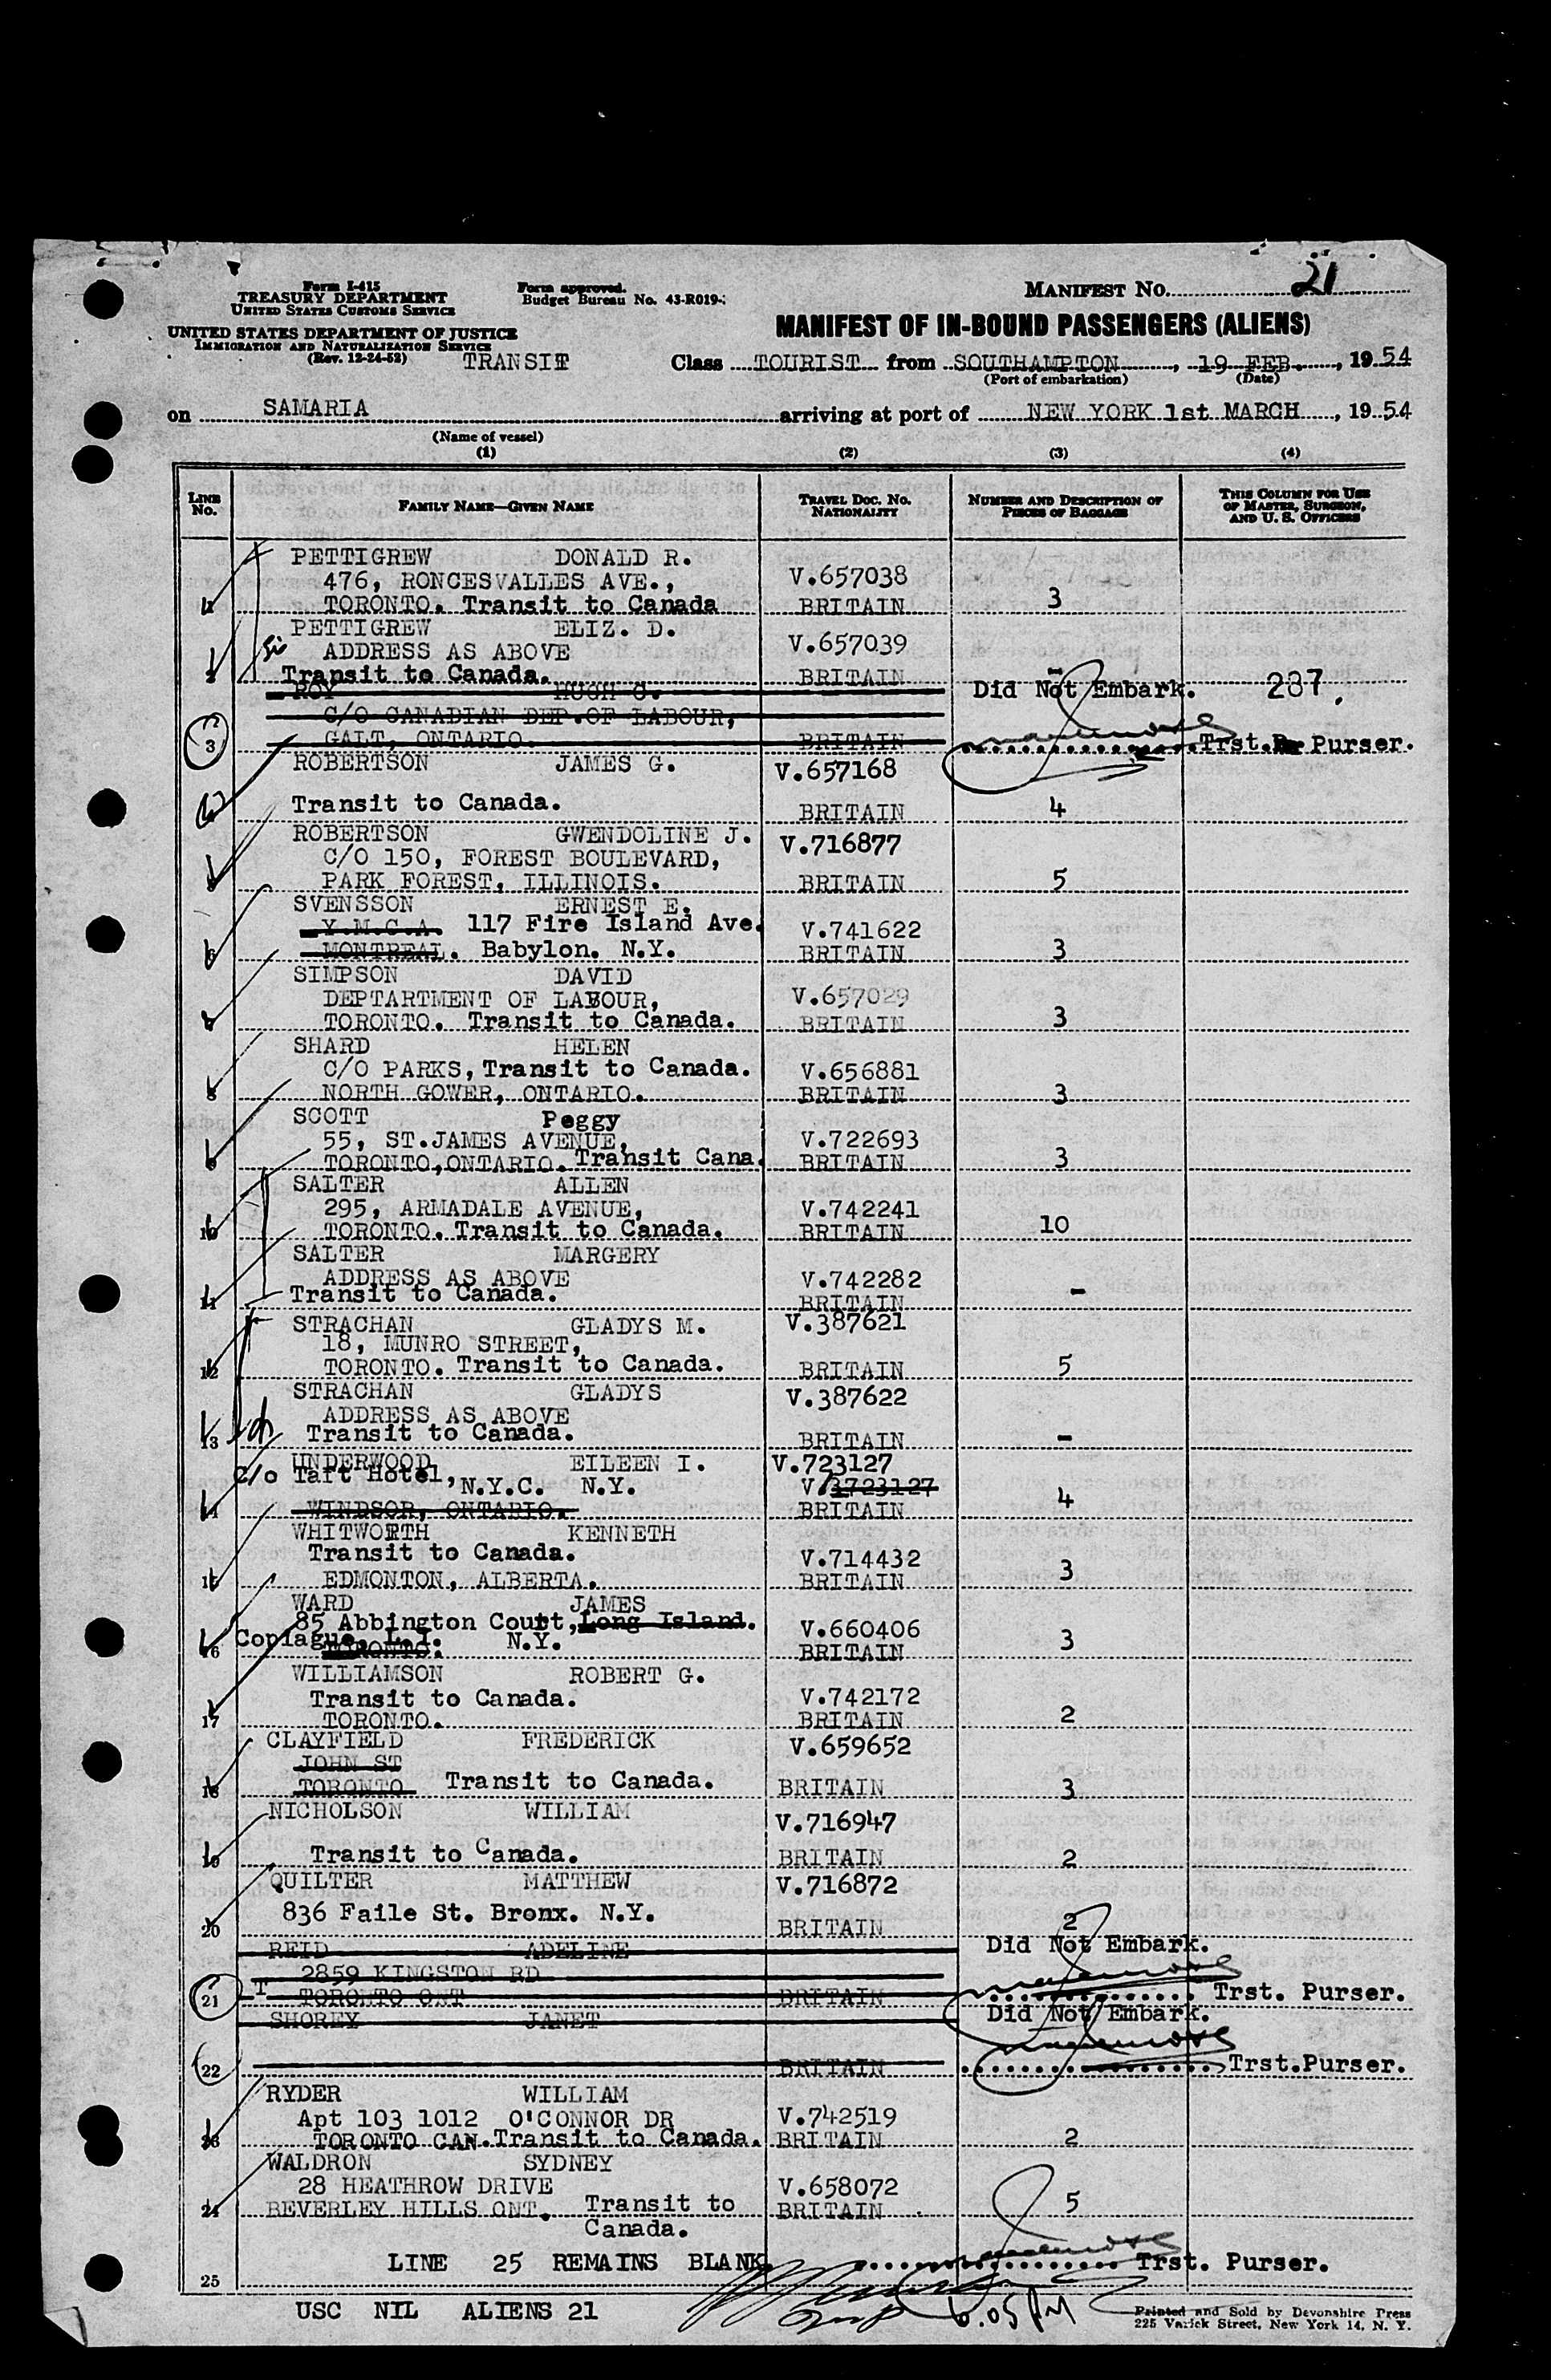 Form I-415
TREASURY DEPARTMENT
UNITED STATES CUSTOMS SERVICE
Form approved.
Budget Bureau No. 43-R019-
MANIFEST NO. 21
UNITED STATES DEPARTMENT OF JUSTICE
IMMIGRATION AND NATURALIZATION SERVICE
(Rev. 12-24-52)
MANIFEST OF IN-BOUND PASSENGERS (ALIENS)
TRANSIT Class TOURIST from SOUTHAMPTON, 19 FEB., 1954
(Port of embarkation) (Date)
on SAMARIA arriving at port of NEW YORK 1st MARCH, 1954
(Name of vessel)
(1) (2) (3) (4)
LINE NO.
FAMILY NAME—GIVEN NAME
TRAVEL DOC. NO. NATIONALITY
NUMBER AND DESCRIPTION OF PIECES OF BAGGAGE
THIS COLUMN FOR USE OF MASTER, SURGEON, AND U. S. OFFICERS
PETTIGREW DONALD R.
476, RONCESVALLES AVE., V.657038
1 TORONTO. Transit to Canada BRITAIN 3
PETTIGREW ELIZ. D.
ADDRESS AS ABOVE V.657039
2 Transit to Canada. BRITAIN -
ROY HUGH C. Did Not Embark. 287.
C/O CANADIAN DEP.OF LABOUR,
3 GALT, ONTARIO. BRITAIN Trst. Purser.
ROBERTSON JAMES G. V.657168
4 Transit to Canada. BRITAIN 4
ROBERTSON GWENDOLINE J. V.716877
C/O 150, FOREST BOULEVARD,
5 PARK FOREST, ILLINOIS. BRITAIN 5
SVENSSON ERNEST E.
Y.M.C.A. 117 Fire Island Ave. V.741622
6 MONTREAL. Babylon. N.Y. BRITAIN 3
SIMPSON DAVID
DEPTARTMENT OF LABOUR, V.657029
7 TORONTO. Transit to Canada. BRITAIN 3
SHARD HELEN
C/O PARKS, Transit to Canada. V.656881
8 NORTH GOWER, ONTARIO. BRITAIN 3
SCOTT Peggy
55, ST.JAMES AVENUE, V.722693
9 TORONTO,ONTARIO. Transit Cana. BRITAIN 3
SALTER ALLEN
295, ARMADALE AVENUE, V.742241
10 TORONTO. Transit to Canada. BRITAIN 10
SALTER MARGERY
ADDRESS AS ABOVE V.742282
11 Transit to Canada. BRITAIN -
STRACHAN GLADYS M. V.387621
18, MUNRO STREET,
12 TORONTO. Transit to Canada. BRITAIN 5
STRACHAN GLADYS V.387622
ADDRESS AS ABOVE
13 Transit to Canada. BRITAIN -
UNDERWOOD EILEEN I. V.723127
C/o Taft Hotel, N.Y.C. N.Y. V.3723127
14 WINDSOR, ONTARIO. BRITAIN 4
WHITWORTH KENNETH
Transit to Canada. V.714432
15 EDMONTON, ALBERTA. BRITAIN 3
WARD JAMES
85 Abbington Court, Long Island. V.660406
16 Copiague, L.I. N.Y. BRITAIN 3
TORONTO.
WILLIAMSON ROBERT G.
Transit to Canada. V.742172
17 TORONTO. BRITAIN 2
CLAYFIELD FREDERICK V.659652
JOHN ST
18 TORONTO Transit to Canada. BRITAIN 3
NICHOLSON WILLIAM V.716947
19 Transit to Canada. BRITAIN 2
QUILTER MATTHEW V.716872
836 Faile St. Bronx. N.Y.
20 BRITAIN 2
REID ADELINE Did Not Embark.
2859 KINGSTON RD
21 T TORONTO ONT BRITAIN Trst. Purser.
SHOREY JANET Did Not Embark.
22 BRITAIN Trst.Purser.
RYDER WILLIAM
Apt 103 1012 O'CONNOR DR V.742519
23 TORONTO CAN. Transit to Canada. BRITAIN 2
WALDRON SYDNEY
28 HEATHROW DRIVE V.658072
24 BEVERLEY HILLS ONT. Transit to BRITAIN 5
Canada.
LINE 25 REMAINS BLANK. Trst. Purser.
25
USC NIL ALIENS 21
6.05 PM
Printed and Sold by Devonshire Press
225 Varick Street, New York 14, N. Y.